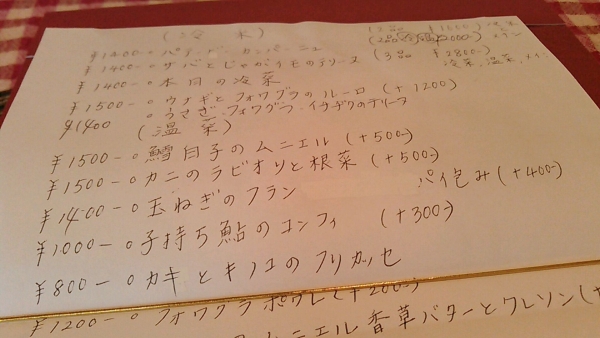 (冷菜)
(2品 ¥1800-)
¥1400-○パテ・ド・カンパーニュ
(3品 ¥2800-)
冷菜、温菜、メイン
¥1400-○サバとじゃがイモのテリーヌ
¥1400-○本日の冷菜
¥1500-○ウナギとフォワグラのルーロ (+1200)
¥1400 ○うさぎ・フォワグラ・イチヂクのテリーヌ
(温菜)
¥1500-○鱈白子のムニエル (+500-)
¥1500-○カニのラビオリと根菜 (+500-)
¥1400-○玉ねぎのフラン パイ包み (+400-)
¥1000-○子持ち鮎のコンフィ (+300-)
¥800-○カキとキノコのフリカッセ
¥1200-○フォワグラポワレ (+200-)
ムニエル香草バターとクレソン (+